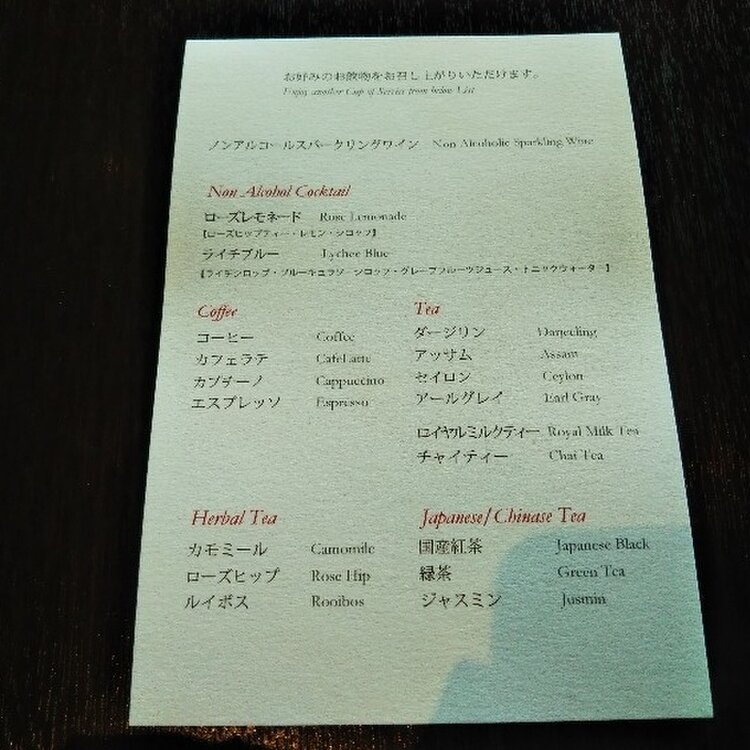 お好みのお飲物をお召し上がりいただけます。
Enjoy another Cup of Service from below List
ノンアルコールスパークリングワイン Non Alcoholic Sparkling Wine
Non Alcohol Cocktail
ローズレモネード Rose Lemonade
【ローズヒップティー・レモン・シロップ】
ライチブルー Lychee Blue
【ライチシロップ・ブルーキュラソーシロップ・グレープフルーツジュース・トニックウォーター】
Coffee
コーヒー Coffee
カフェラテ CafeLatte
カプチーノ Cappuccino
エスプレッソ Espresso
Tea
ダージリン Darjeeling
アッサム Assam
セイロン Ceylon
アールグレイ Earl Gray
ロイヤルミルクティー Royal Milk Tea
チャイティー Chai Tea
Herbal Tea
カモミール Camomile
ローズヒップ Rose Hip
ルイボス Rooibos
Japanese/Chinase Tea
国産紅茶 Japanese Black
緑茶 Green Tea
ジャスミン Jusmin